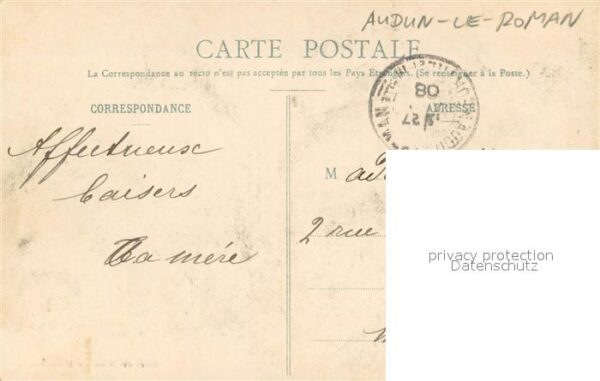 AUDUN-LE-ROMAN
CARTE POSTALE
La Correspondance au recto n'est pas acceptée par tous les Pays Étrangers. (Se renseigner à la Poste.)
CORRESPONDANCE
ADRESSE
08
27
Affectueux
baisers
Ta mère
M
2 rue
privacy protection
Datenschutz